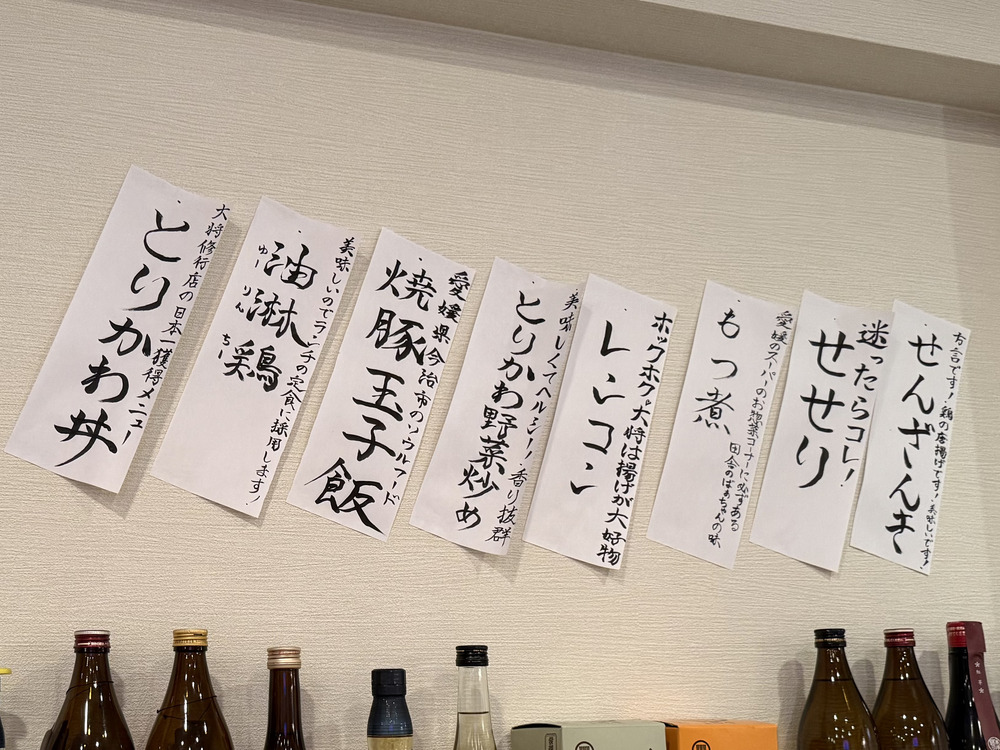 方言です！鶏の唐揚げです！美味しいです！
せんざんき
迷ったらコレ！
せせり
愛媛のスーパーのお惣菜コーナーに必ずある
田舎のばぁちゃんの味
もつ煮
ホックホク。大将は揚げが大好物
レンコン
美味しくてヘルシー！香り抜群
とりかわ野菜炒め
愛媛県今治市のソウルフード
焼豚玉子飯
美味しいのでランチの定食に採用します！
油淋鶏
ゆーりんちー
大将修行店の日本一獲得メニュー
とりかわ丼